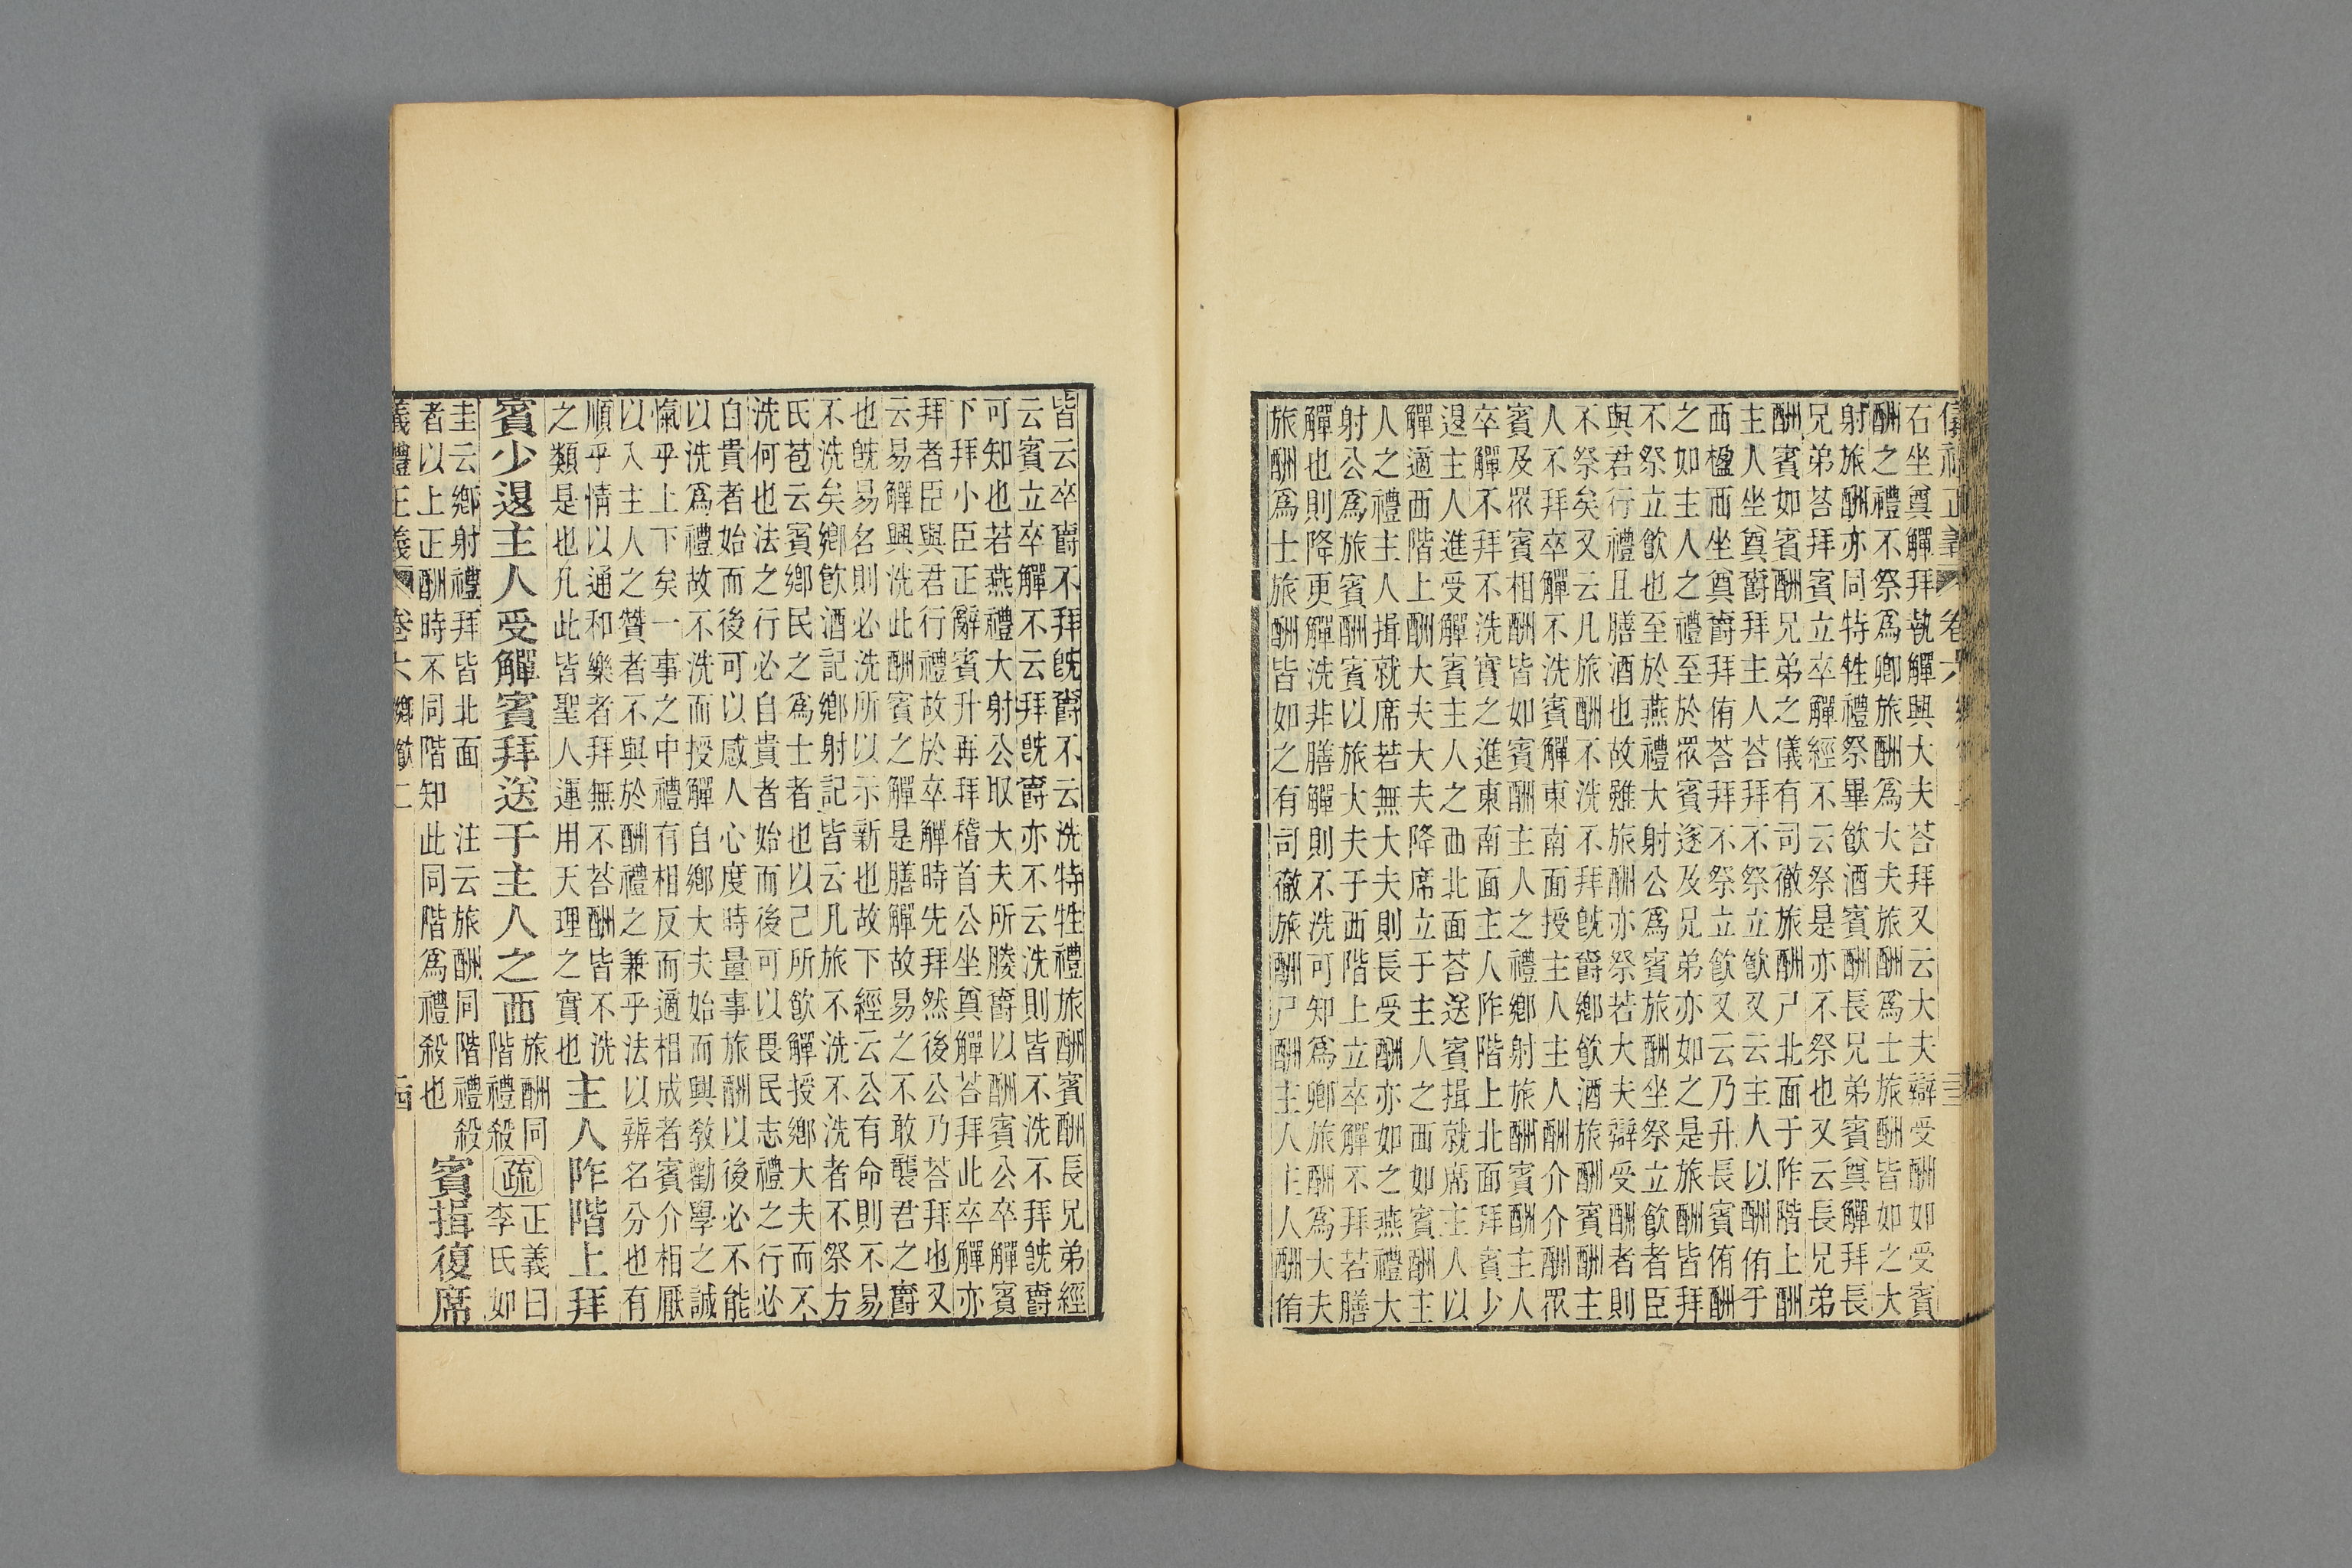 儀禮正義 卷六
右坐奠觶拜執觶興大夫荅拜又云大夫辯受酬如受賓
酬之禮不祭爲卿旅酬爲大夫旅酬爲士旅酬皆如之大
射旅酬亦同特牲禮祭畢飮酒賓酬長兄弟賓奠觶拜長
兄弟荅拜賓立卒觶經不云祭是亦不祭也又云長兄弟
酬賓如賓酬兄弟之儀有司徹旅酬尸北面于阼階上酬
主人坐奠爵拜主人荅拜不祭立飮又云主人以酬侑于
西楹西坐奠爵拜侑荅拜不祭立飮又云乃升長賓侑酬
之如主人之禮至於眾賓遂及兄弟亦如之是旅酬皆拜
不祭立飮也至於燕禮大射公爲賓旅酬坐祭立飮者臣
與君行禮且膳酒也故雖旅酬亦祭若大夫辯受酬者則
不祭矣又云凡旅酬不洗不拜旣爵鄉飮酒旅酬賓酬主
人不拜卒觶不洗賓觶東南面授主人主人酬介介酬眾
賓及眾賓相酬皆如賓酬主人之禮鄉射旅酬賓酬主人
卒觶不拜不洗實之進東南面主人阼階上北面拜賓少
退主人進受觶賓主人之西北面荅送賓揖就席主人以
觶適西階上酬大夫大夫降席立于主人之西如賓酬主
人之禮主人揖就席若無大夫則長受酬亦如之燕禮大
射公爲旅賓酬賓以旅大夫于西階上立卒觶不拜若膳
觶也則降更觶洗非膳觶則不洗可知爲卿旅酬爲大夫
旅酬爲士旅酬皆如之有司徹旅酬尸酬主人主人酬侑
皆云卒爵不拜旣爵不云洗特牲禮旅酬賓酬長兄弟經
云賓立卒觶不云拜旣爵亦不云洗則皆不洗不拜旣爵
可知也若燕禮大射公取大夫所媵爵以酬賓公卒觶賓
下拜小臣正辭賓升再拜稽首公坐奠觶荅拜此卒觶亦
拜者臣與君行禮故於卒觶時先拜然後公乃荅拜也又
云易觶興洗此酬賓之觶是膳觶故易之不敢襲君之爵
也旣易名則必洗所以示新也故下經云公有命則不易
不洗矣鄉飮酒記鄉射記皆云凡旅不洗不洗者不祭方
氏苞云賓鄉民之爲士者也以己所飮觶授鄉大夫而不
洗何也法之行必自貴者始而後可以畏民志禮之行必
自貴者始而後可以感人心度時量事旅酬以後必不能
以洗爲禮故不洗而授觶自鄉大夫始而興敎勸學之誠
愾乎上下矣一事之中禮有相反而適相成者賓介相厭
以入主人之贊者不與於酬禮之兼乎法以辨名分也有
順乎情以通和樂者拜無不荅酬皆不洗
之類是也凡此皆聖人運用天理之實也
主人阼階上拜
賓少退主人受觶賓拜送于主人之西
旅酬同
階禮殺
疏
正義曰
李氏如
圭云鄉射禮拜皆北面 注云旅酬同階禮殺
者以上正酬時不同階知此同階爲禮殺也
賓揖復席
儀禮正義 卷六 鄉飮二